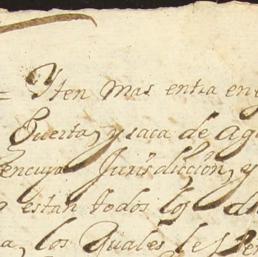 = Yten mas entra en
Puerta, y saca de ag
en cuya Jurisdiccion, y
estan todos los
a, los Quales le